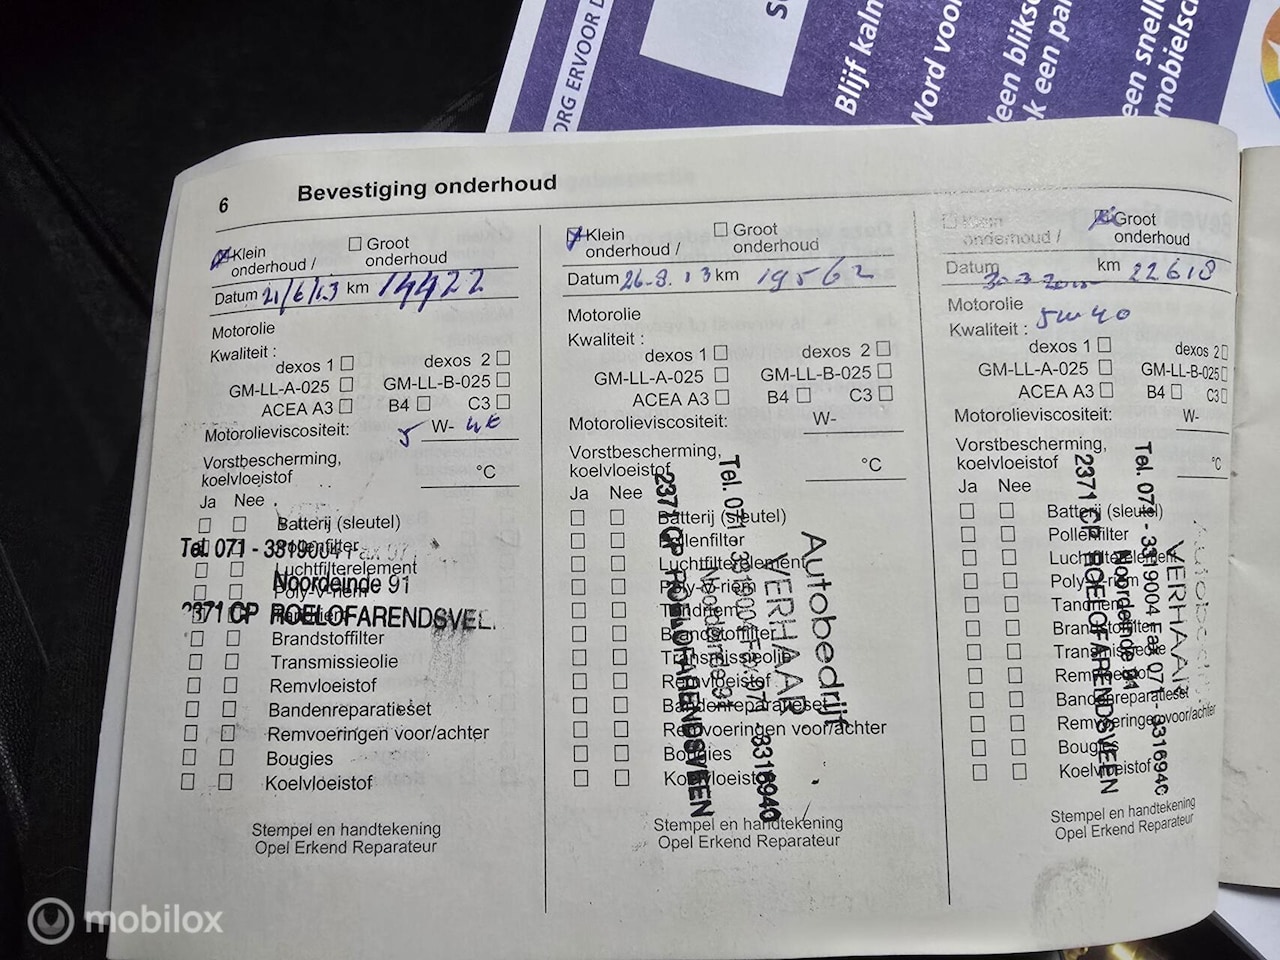 ORG ERVOOR D
Blijf kaln
Word voor
een snelle
mobielsch
6
Bevestiging onderhoud
Klein
onderhoud /
Groot
onderhoud
Datum 21/6/13 km 14422
Motorolie
Kwaliteit :
dexos 1
dexos 2
GM-LL-A-025
GM-LL-B-025
ACEA A3
B4
C3
Motorolieviscositeit:
5 W- 40
Vorstbescherming,
koelvloeistof
°C
Ja Nee
Batterij (sleutel)
Pollenfilter
Luchtfilterelement
Poly-v-riem
Brandstoffilter
Transmissieolie
Remvloeistof
Bandenreparatieset
Remvoeringen voor/achter
Bougies
Koelvloeistof
Tel. 071 - 3319004 Fax 07
Noordeinde 91
2371 CP ROELOFARENDSVEE
Stempel en handtekening
Opel Erkend Reparateur
Klein
onderhoud /
Groot
onderhoud
Datum 26-8.13 km 19562
Motorolie
Kwaliteit :
dexos 1
dexos 2
GM-LL-A-025
GM-LL-B-025
ACEA A3
B4
C3
Motorolieviscositeit:
W-
Vorstbescherming,
koelvloeistof
°C
Ja Nee
Batterij (sleutel)
Pollenfilter
Luchtfilterelement
Poly-v-riem
Tandriem
Brandstoffilter
Transmissieolie
Remvloeistof
Bandenreparatieset
Remvoeringen voor/achter
Bougies
Koelvloeistof
Autobedrijf
VERHAAR
Noordeinde 91
2371 CP ROELOFARENDSVEEN
Tel. 071 - 3319004 Fax 071 - 3316940
Stempel en handtekening
Opel Erkend Reparateur
Klein
onderhoud /
Groot
onderhoud
Datum
km 22618
Motorolie
Kwaliteit : 5w40
dexos 1
dexos 2
GM-LL-A-025
GM-LL-B-025
ACEA A3
B4
C3
Motorolieviscositeit:
W-
Vorstbescherming,
koelvloeistof
°C
Ja Nee
Batterij (sleutel)
Pollenfilter
Luchtfilterelement
Poly-v-riem
Tandriem
Brandstoffilter
Transmissieolie
Remvloeistof
Bandenreparatieset
Remvoeringen voor/achter
Bougies
Koelvloeistof
Autobedrijf
VERHAAR
Noordeinde 91
2371 CP ROELOFARENDSVEEN
Tel. 071 - 3319004 Fax 071 - 3316940
Stempel en handtekening
Opel Erkend Reparateur
mobilox